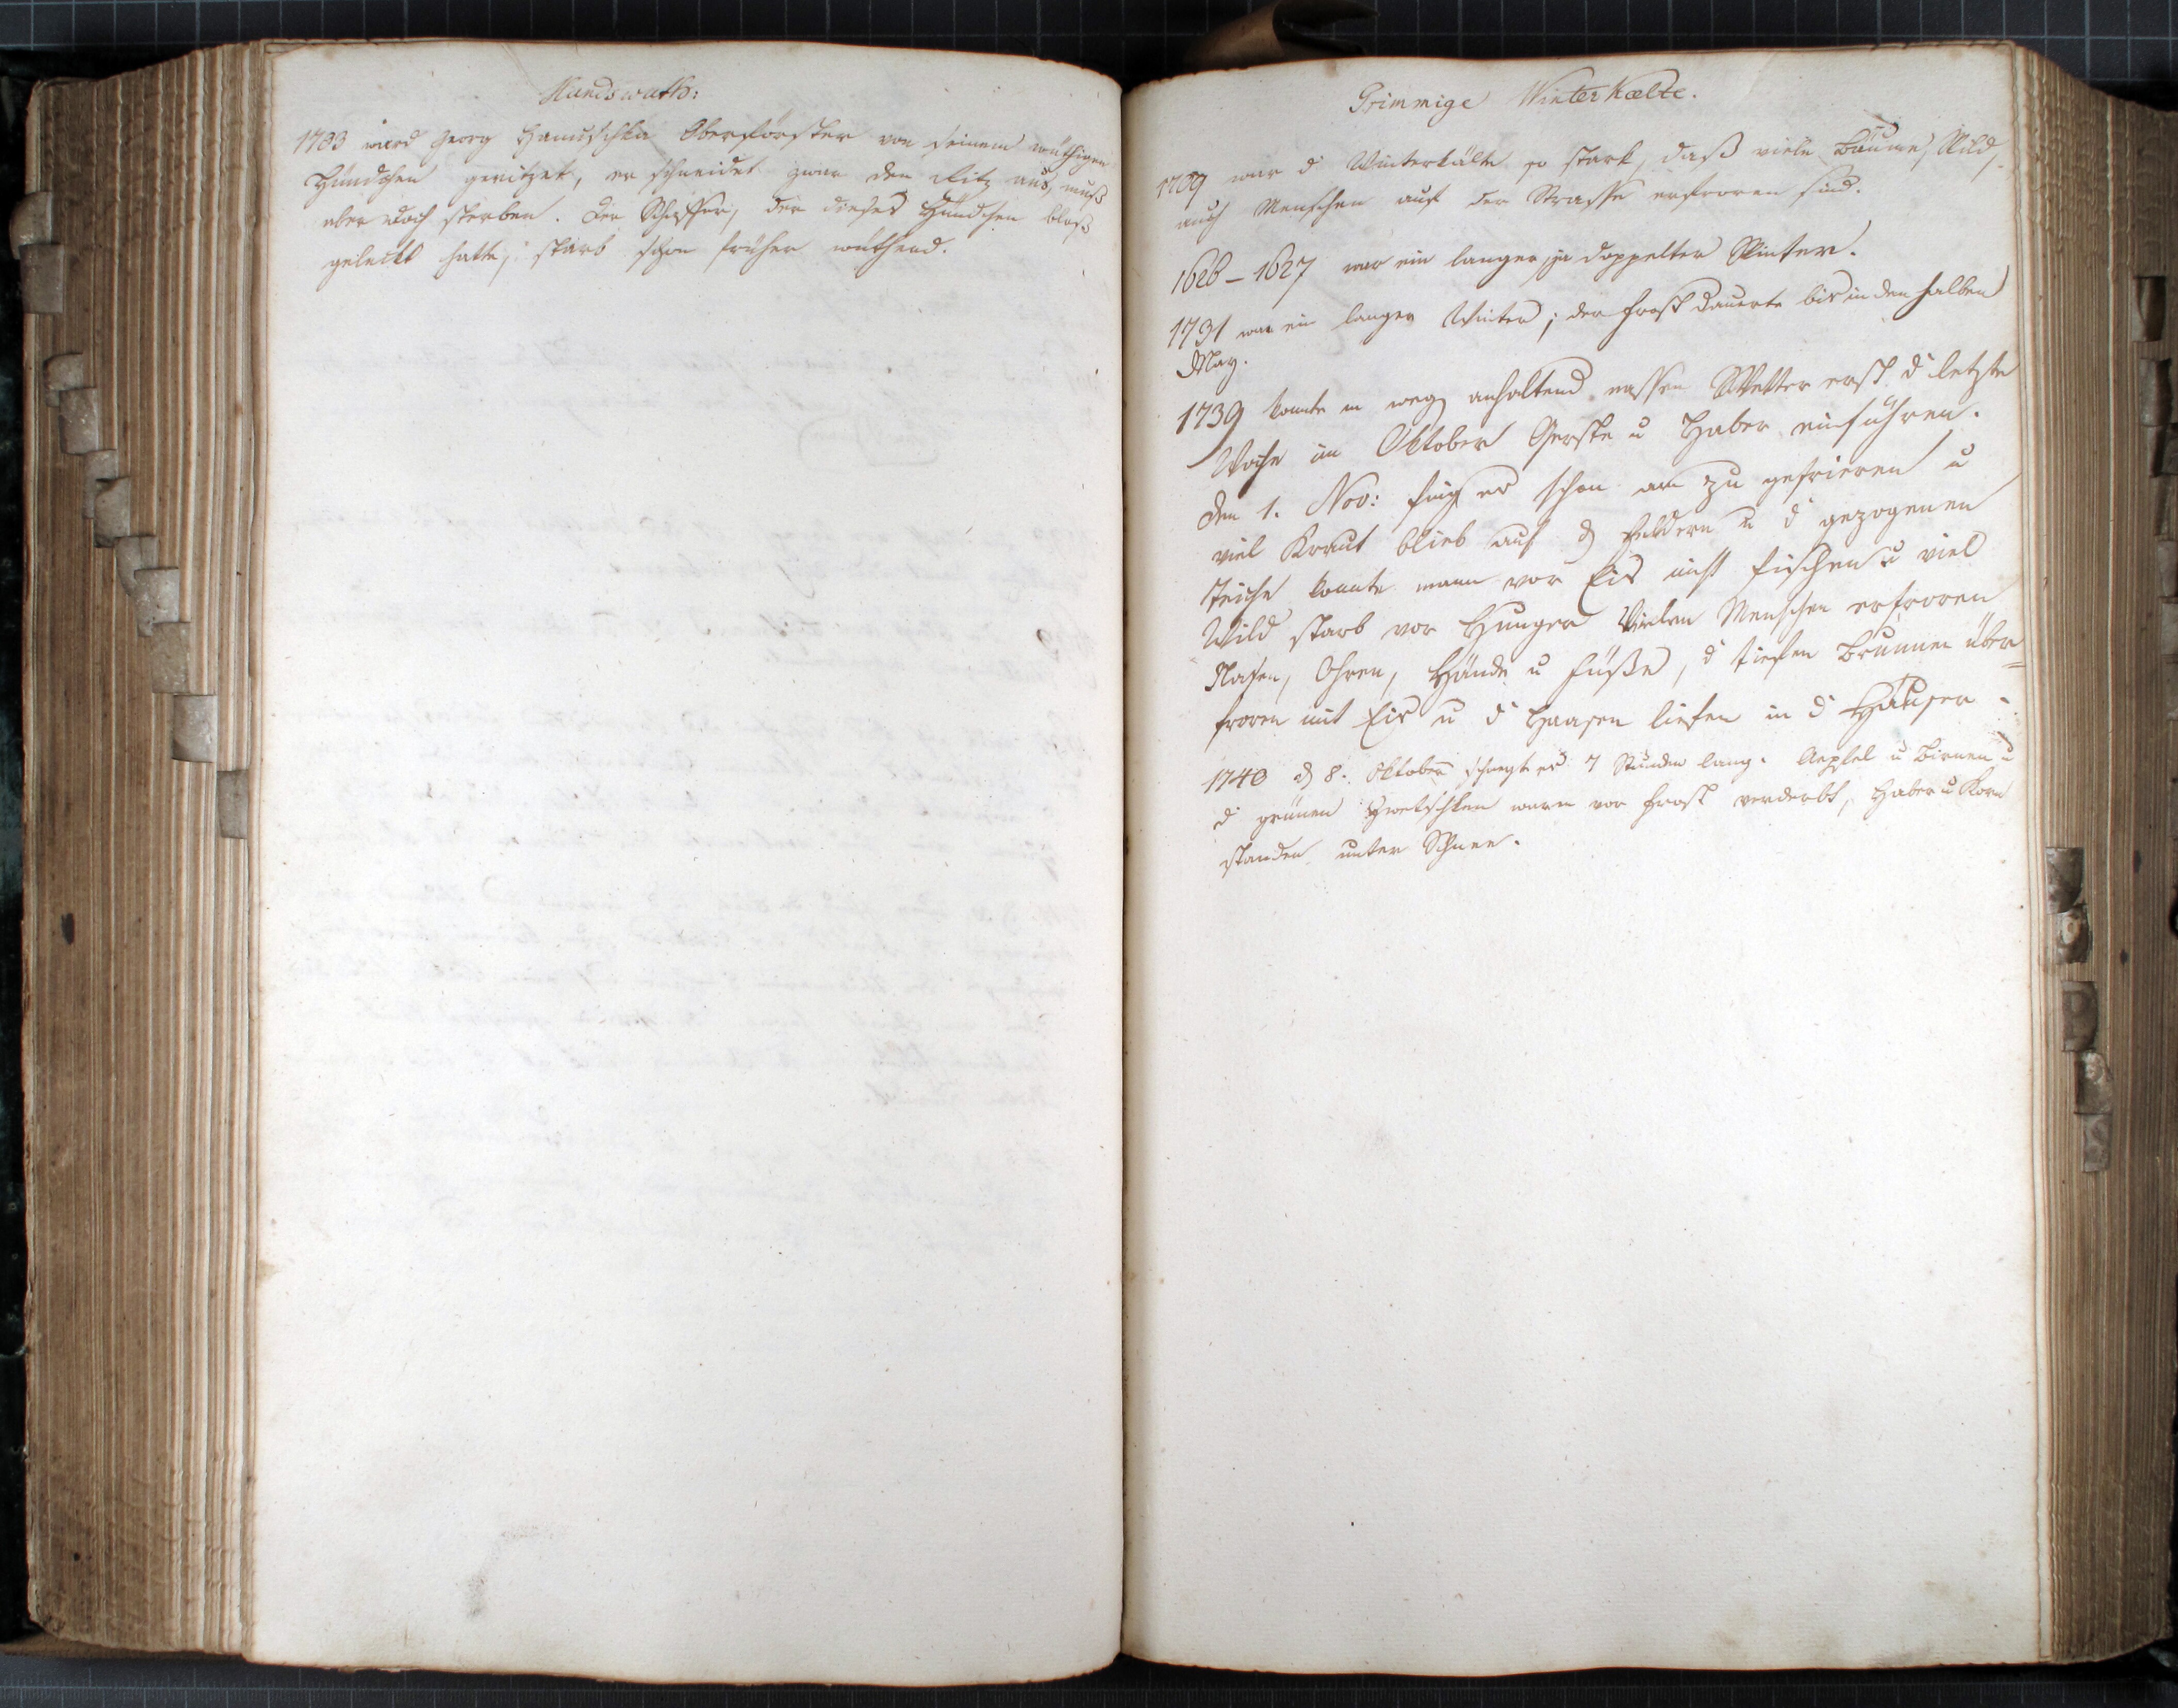 Hundswuth:
1783 ward Georg Hanuschka Oberförster von seinem wüthigen
Hündchen geritzet, er schneidet zwar den Ritz aus, muß
aber doch sterben. Der Schaffer, der dieses Hündchen bloß
geleckt hatte, starb schon früher wüthend.
Grimmige Winterkælte.
1709 war d Winterkälte so stark, daß viele Bäume, Wild,
auch Menschen auf der Strasse erfroren sind.
1626–1627 war ein langer, ja doppelter Winter.
1731 war ein langer Winter; der Frost dauerte bis in den halben
May.
1739 konnte m weg anhaltend nassen Wetter erst d letzte
Woche im Oktober Gerste u Haber einführen.
Den 1. Nov: fing es schon an zu gefrieren u
viel Kraut blieb auf d Feldern u d gezogenen
Teiche konnte mann vor Eis nicht fischen u viel
Wild starb vor Hunger Vielen Menschen erfroren
Nasen, Ohren, Hände u Füße, d tiefen Brunnen über=
froren mit Eis u d Haasen liefen in d Häuser.
1740 d 8. Oktober schneyte es 7 Stunden lang. Aepfel u Birnen u
d grünen Zwetschken waren vor Frost verderbt, Haber u Korn
standen unter Schnee.